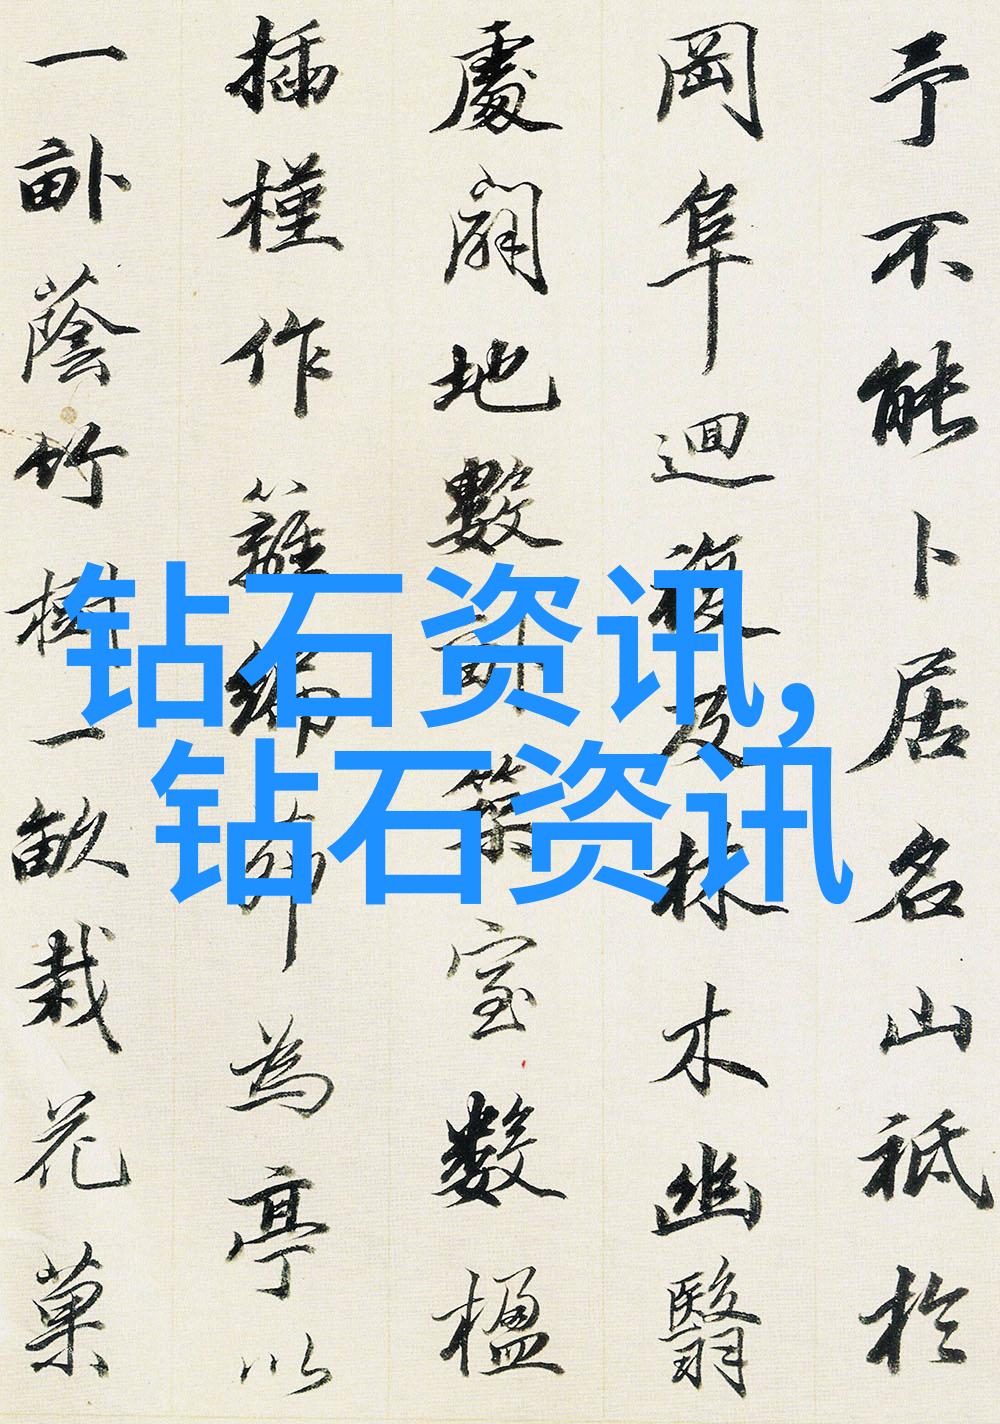 予不能卜居名山祗於
岡阜迴複及林木幽翳
處闢地數畝築室數楹
插槿作籬編茆為亭以
一畝蔭竹樹一畝栽花菓
钻石资讯,
钻石资讯